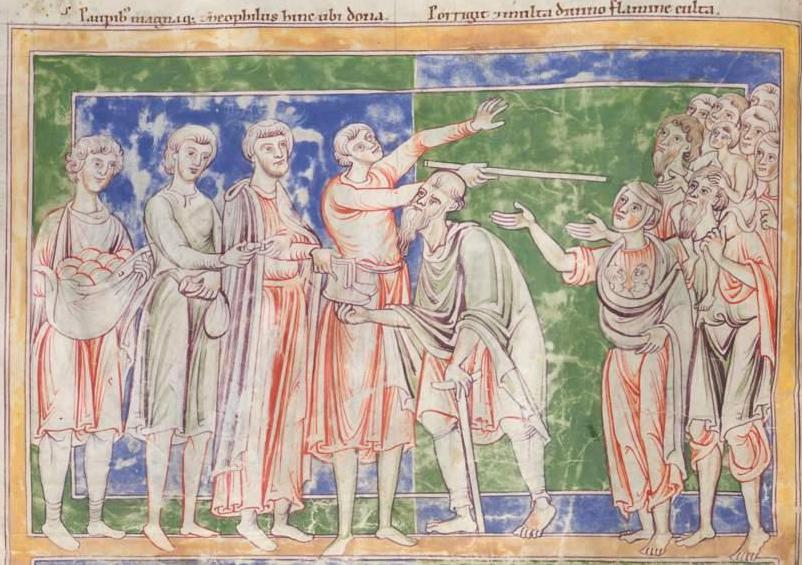 Paupib' magnaq; theophilus hinc tibi dona. Porrigit ⁊ multa diuino flamine culta.